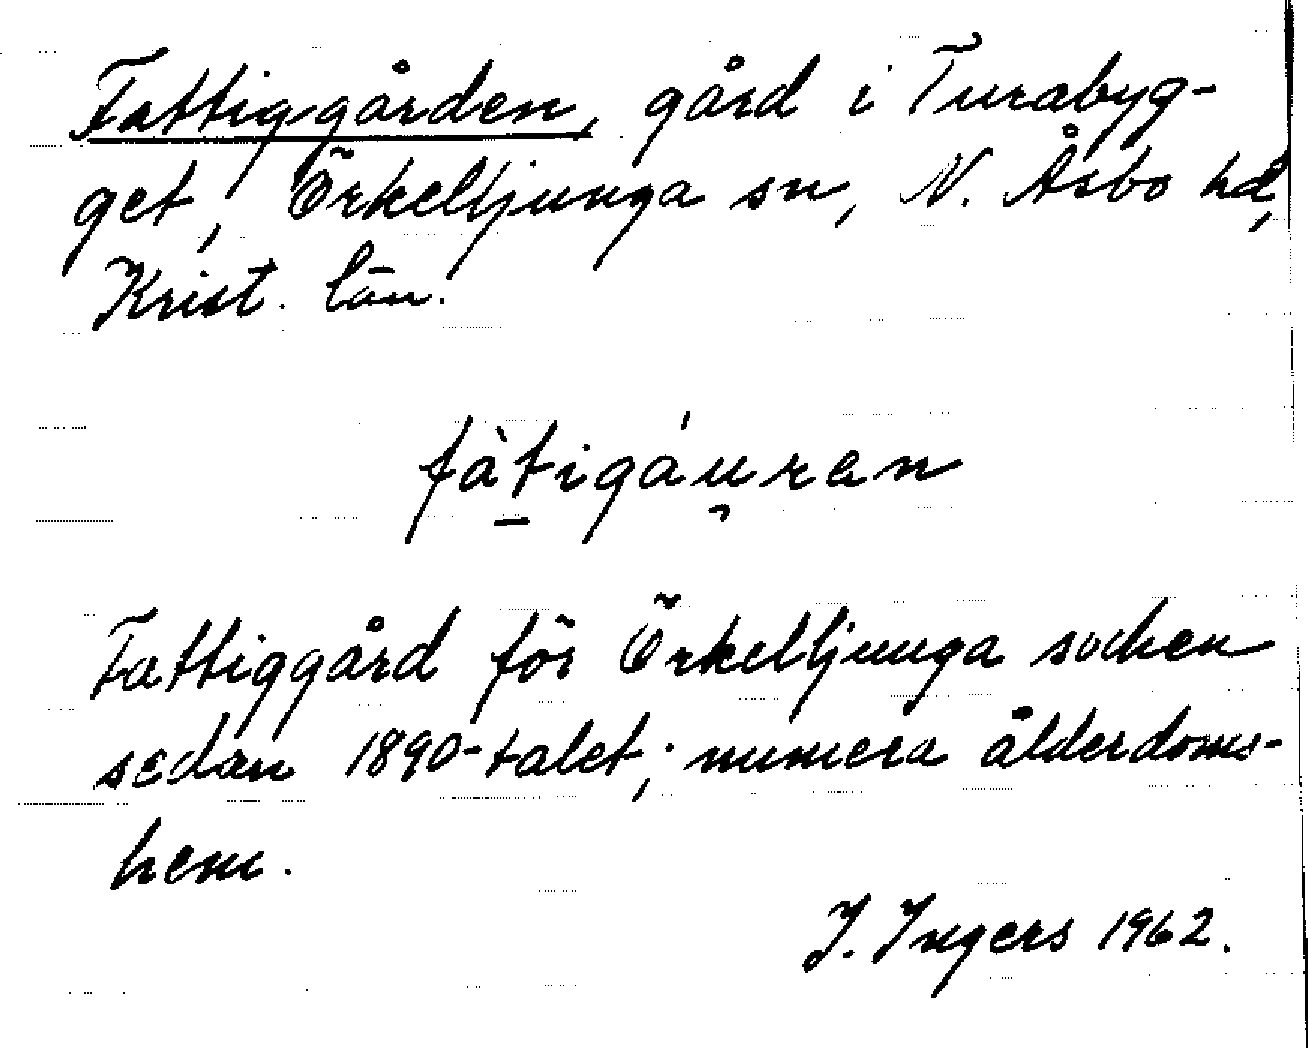 Fattiggården, gård i Turabyg-
get, Örkelljunga sn, N. Åsbo hd,
Krist. län.
fàti̠gáu̯ren
Fattiggård för Örkelljunga socken
sedan 1890-talet; numera ålderdoms-
hem.
I. Ingers 1962.